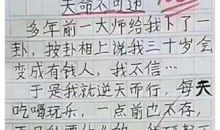 天命不可违
多年前一大师给我下了一
卦，按卦相上说我三十岁会
变成有钱人，我不信…
于是我就逆天而行，每天
吃喝玩乐，一点前也不存，